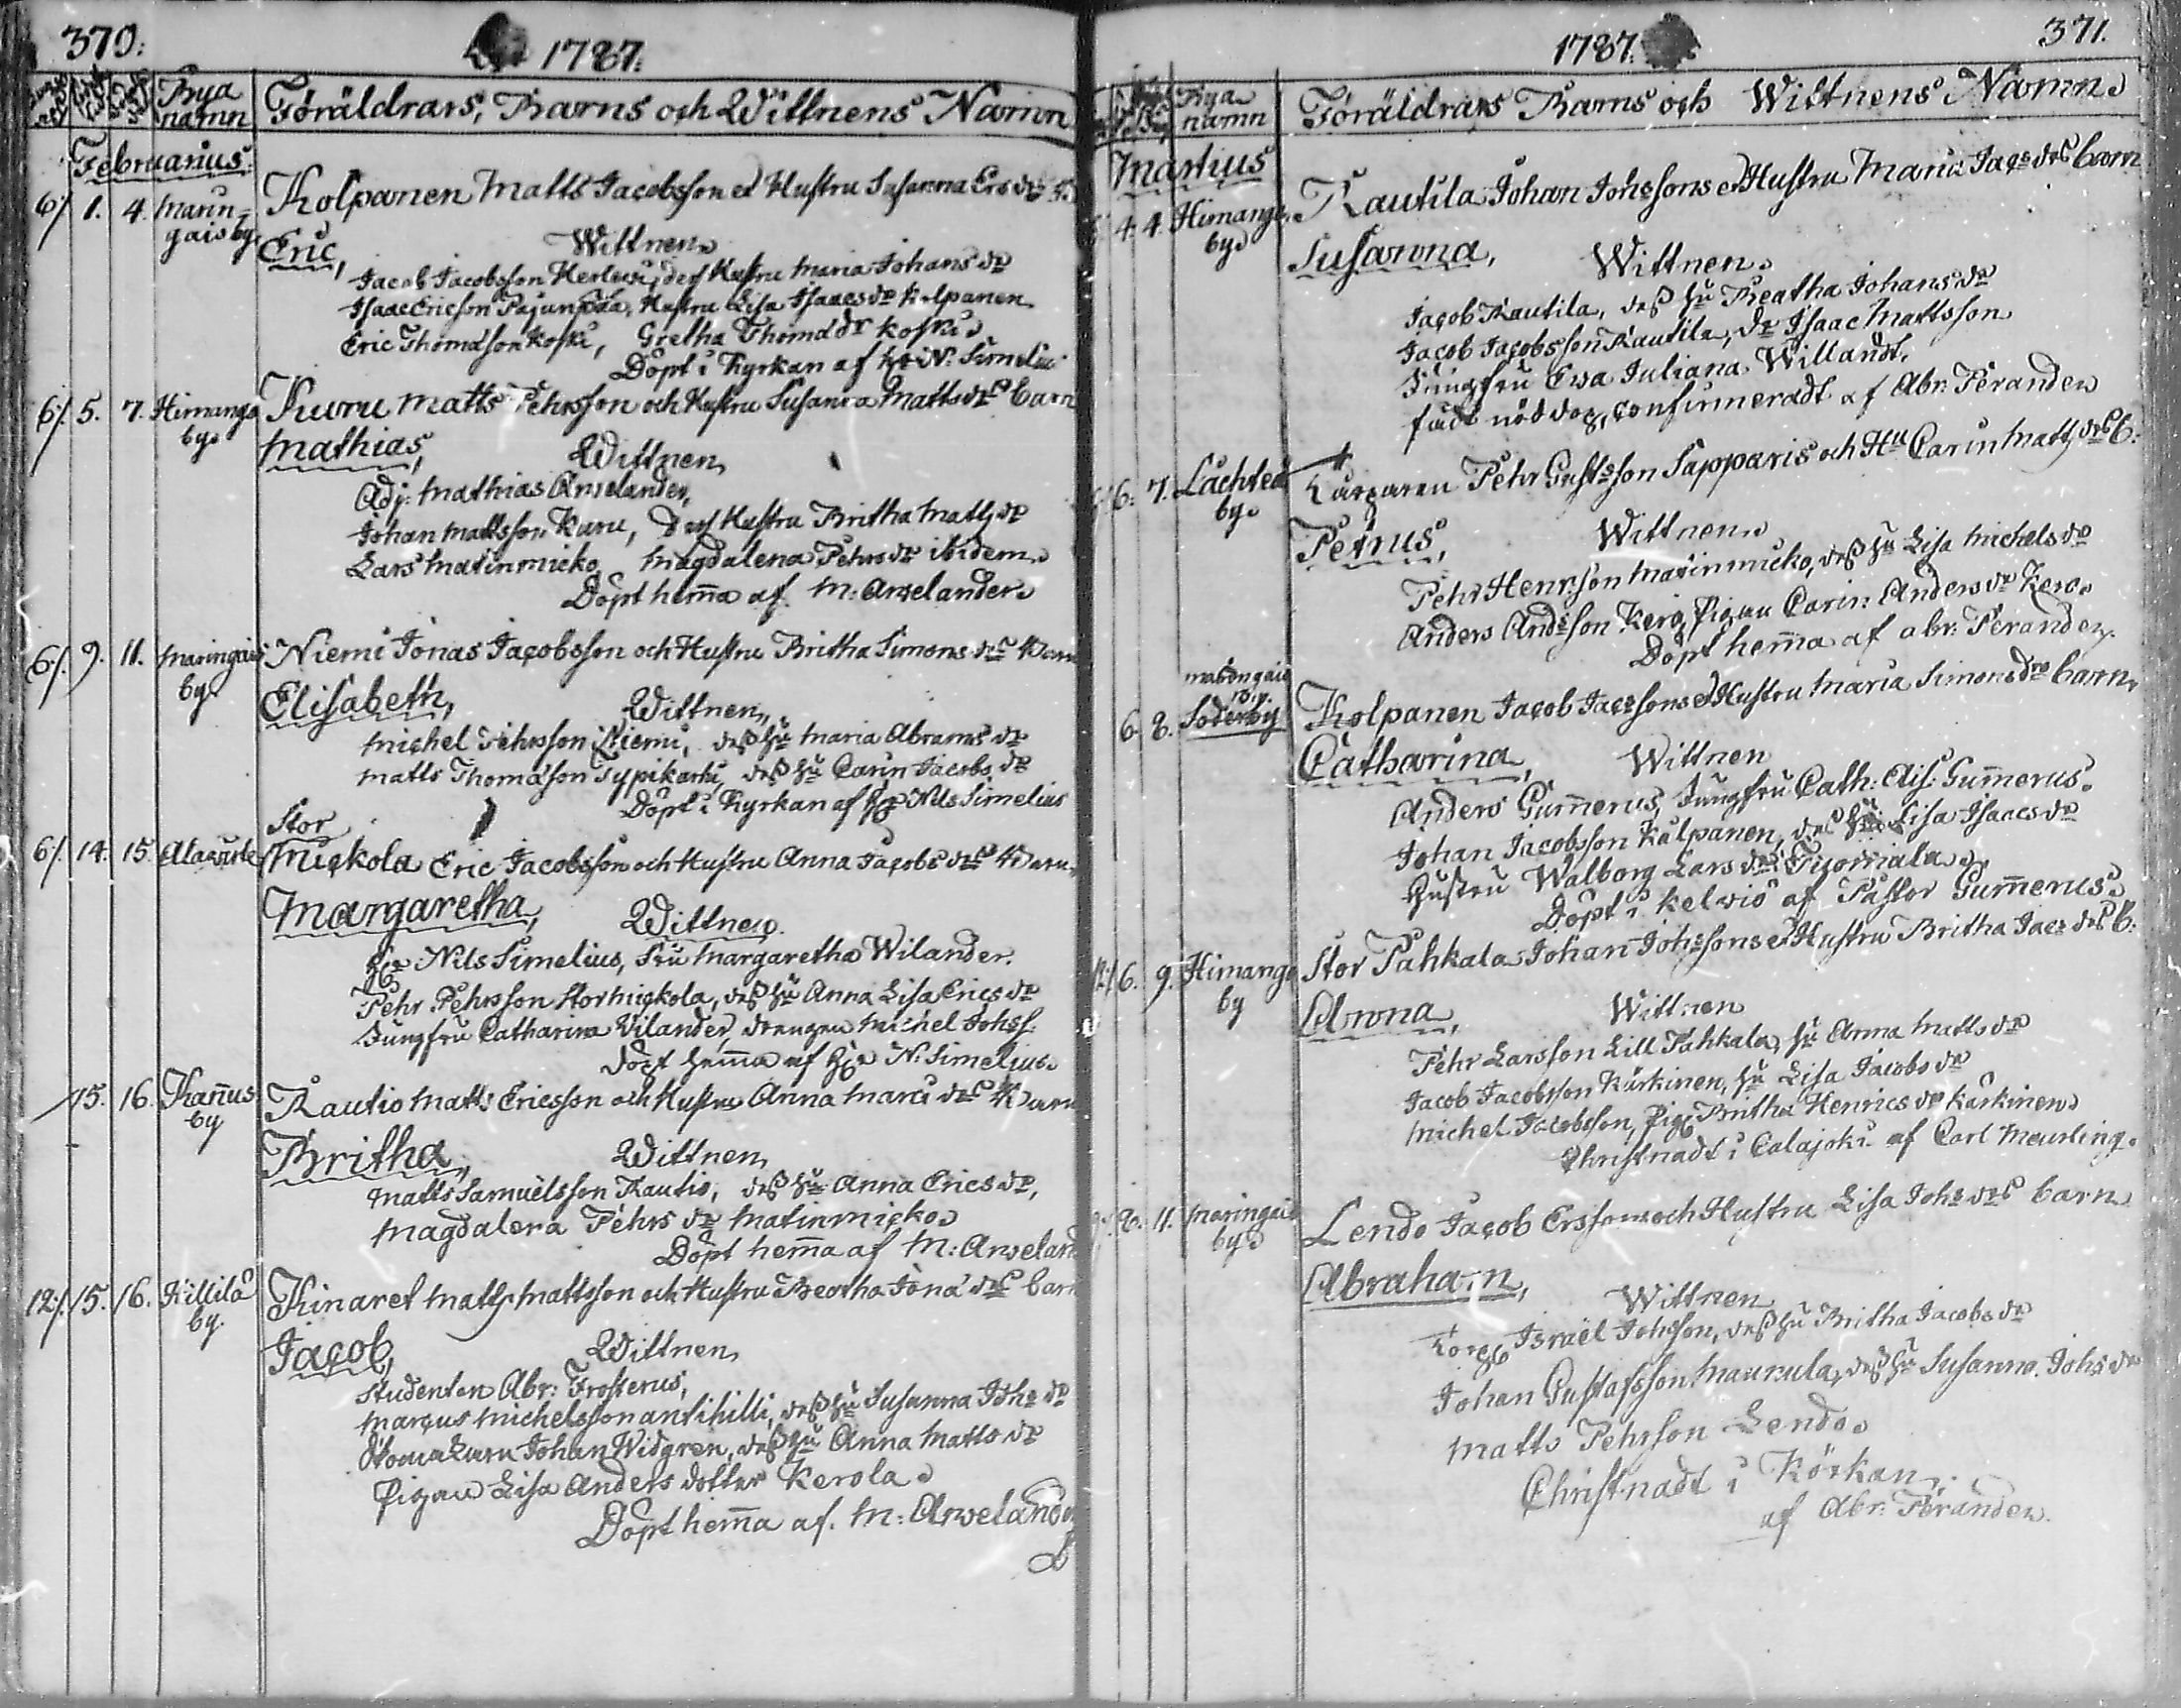 370.
1787.
Bya namn
Föräldrars, Barns och Wittnens Namn
Februarius
6/. 1. 4. Marin=
gais by.
Kolpanen Matts Jacobsson et Hustru Susanna Ers dr
Eric, Wittnen
Jacob Jacobsson Herlewi, dess Hustru Maria Johans dr
Isaac Ericson Pajunpää, Hustru Lisa Isaacs dr Kolpanen
Eric Thomasson Koski, Gretha Thomæ dr Koski
Döpt i Kyrkan af N: Simelius
6/. 5. 7. Himango by
Kuvru Matts Pehrsson och Hustru Susanna Matts drs barn
Mathias, Wittnen
Adj: Mathias Arwelander,
Johan Mattsson Kuru, dess Hustru Britha Matts dr
Lars Matinmicko, Magdalena Pehrs dr ibidem
Döpt hemma af M: Arwelander
6/. 9. 11. Maringais by
Niemi Jonas Jacobsson och Hustru Britha Simons drs Barn
Elisabeth, Wittnen
Michel Pehrsson Niemi, dess hu Maria Abrams dr
Matts Thomasson Typikartu, dess hu Carin Jacobs dr
Döpt i Kyrkan af Nils Simelius
Stor
6/. 14. 15. Alaqviste
Mickola Eric Jacobsson och Hustru Anna Jacobs drs Barn
Margaretha, Wittnen
Nils Simelius, Fru Margaretha Wilander.
Pehr Pehrsson Stormickola, dess hu Anna Lisa Erics dr
Jungfru Catharina Vilander, drengen Michel Johss:
döpt hemma af N: Simelius
15. 16. Kannus by
Rautio Matts Ericsson och Hustru Anna Marci drs Barn
Britha, Wittnen
Matts Samuelsson Rautio, dess hu Anna Erics dr,
Magdalena Pehrs dr Matinmicko
Döpt hemma af M: Arweland
12/. 15. 16. Killilä by.
Kinaret Matts Mattsson och Hustru Beatha Jonæ drs barn
Jacob, Wittnen
Studenten Abr: Frosterus,
Marcus Michelsson Antihilli, dess hu Susanna Johs dr
Skomakaren Johan Widgren, dess hu Anna Matts dr
Pigan Lisa Anders dotter Kerola
Döpt hemma af M: Arweland
371.
1787.
Bya namn
Föräldrars Barns och Wittnens Namn
Martius
4. 4. Himango by
Rautila Johan Johssons et Hustru Maria Jacs drs barn
Susanna, Wittnen
Jacob Rautila, dess hu Beatha Johans dr
Jacob Jacobsson Rautila, dr Isaac Mattsson
Jungfru Ewa Juliana Willandt,
fådt nöd dop, confirmeradt af Abr: Perander
6. 7. Lächteä by
Pehr Gustsson Sapparis och Hu Carin Matts drs b:
Petrus, Wittnen
Pehr Henrsson Matinmicko, dess hu Lisa Michels dr
Anders Andsson Kero, Pigan Carin Anders dr Kero
Döpt hemma af Abr: Perander.
Maringais by.
6. 8. Söderby
Kolpanen Jacob Jacssons et Hustru Maria Simons drs barn
Catharina, Wittnen
Anders Gummerus, Jungfru Cath: Elis: Gummerus.
Johan Jacobsson Kålpanen, dess hu Lisa Isaacs dr
Hustru Walborg Lars dr Tuomala
Döpt i Kelvio af Pastor Gummerus.
12/. 6. 9. Himango by
Stor Pahkala Johan Johssons et Hustru Britha Jacs drs b:
Anna, Wittnen
Pehr Larsson Lill Pahkala, hu Anna Matts dr
Jacob Jacobsson Kärkinen, hu Lisa Jacobs dr
Michel Jacobsson, Pig. Britha Henrics dr Kärkinen
Christnadt i Calajoki af Carl Meurling.
8. 11. Maringais by
Lendo Jacob Erssons och Hustru Lisa Johs drs barn
Abraham, Wittnen
Torp. Israël Johsson, dess hu Britha Jacobs dr
Johan Gustafsson Maunula, dess hu Susanna Johs dr
Matts Pehrson Lendo
Christnadt i Körkan
af Abr: Perander.